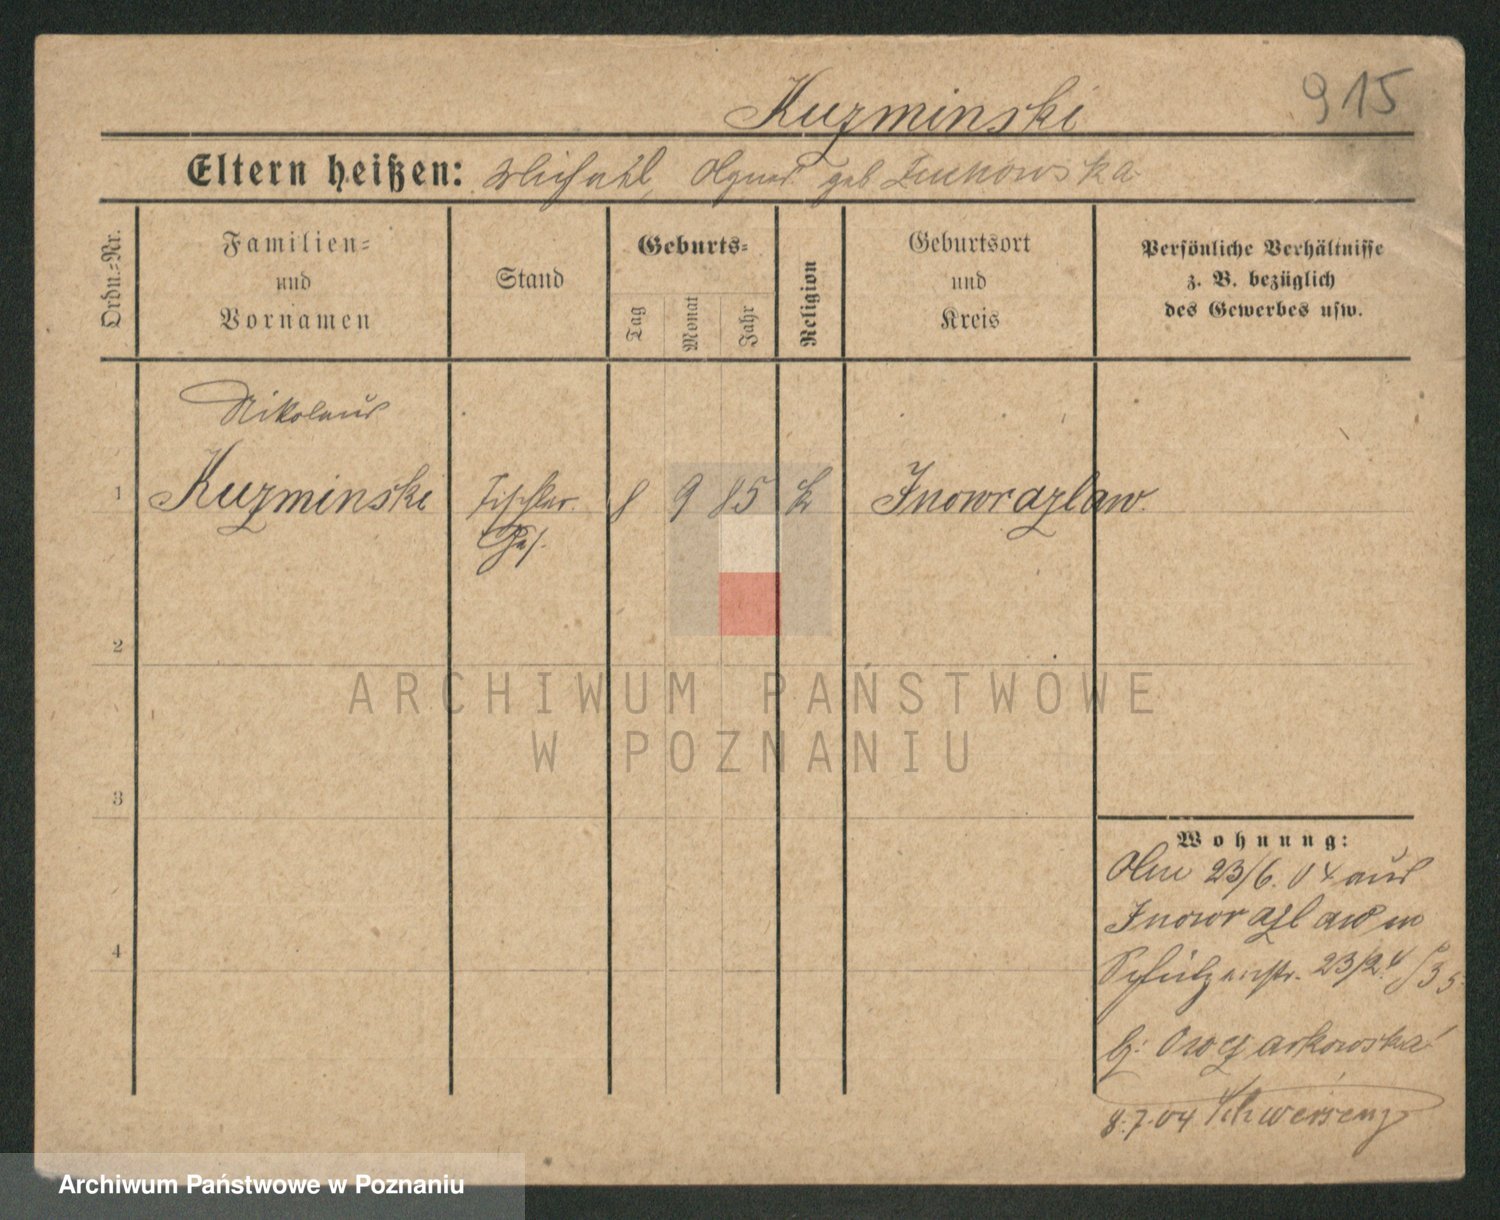 915
Kuzminski
Eltern heißen: Michael, Agnes geb
Ordn.=Nr.
Familien=
und
Vornamen
Stand
Geburts=
Tag
Monat
Jahr
Religion
Geburtsort
und
Kreis
Persönliche Verhältnisse
z. B. bezüglich
des Gewerbes usw.
Nikolaus
1 Kuzminski Tischler 8 9 85 k Inowrazlaw.
Ges.
2
ARCHIWUM PAŃSTWOWE
W POZNANIU
3
4
Wohnung:
23/6. 04 aus
Inowrazlaw in
Schützenstr. 23/24
b: Owczarkowska
8.7.04 Schwersenz
Archiwum Państwowe w Poznaniu